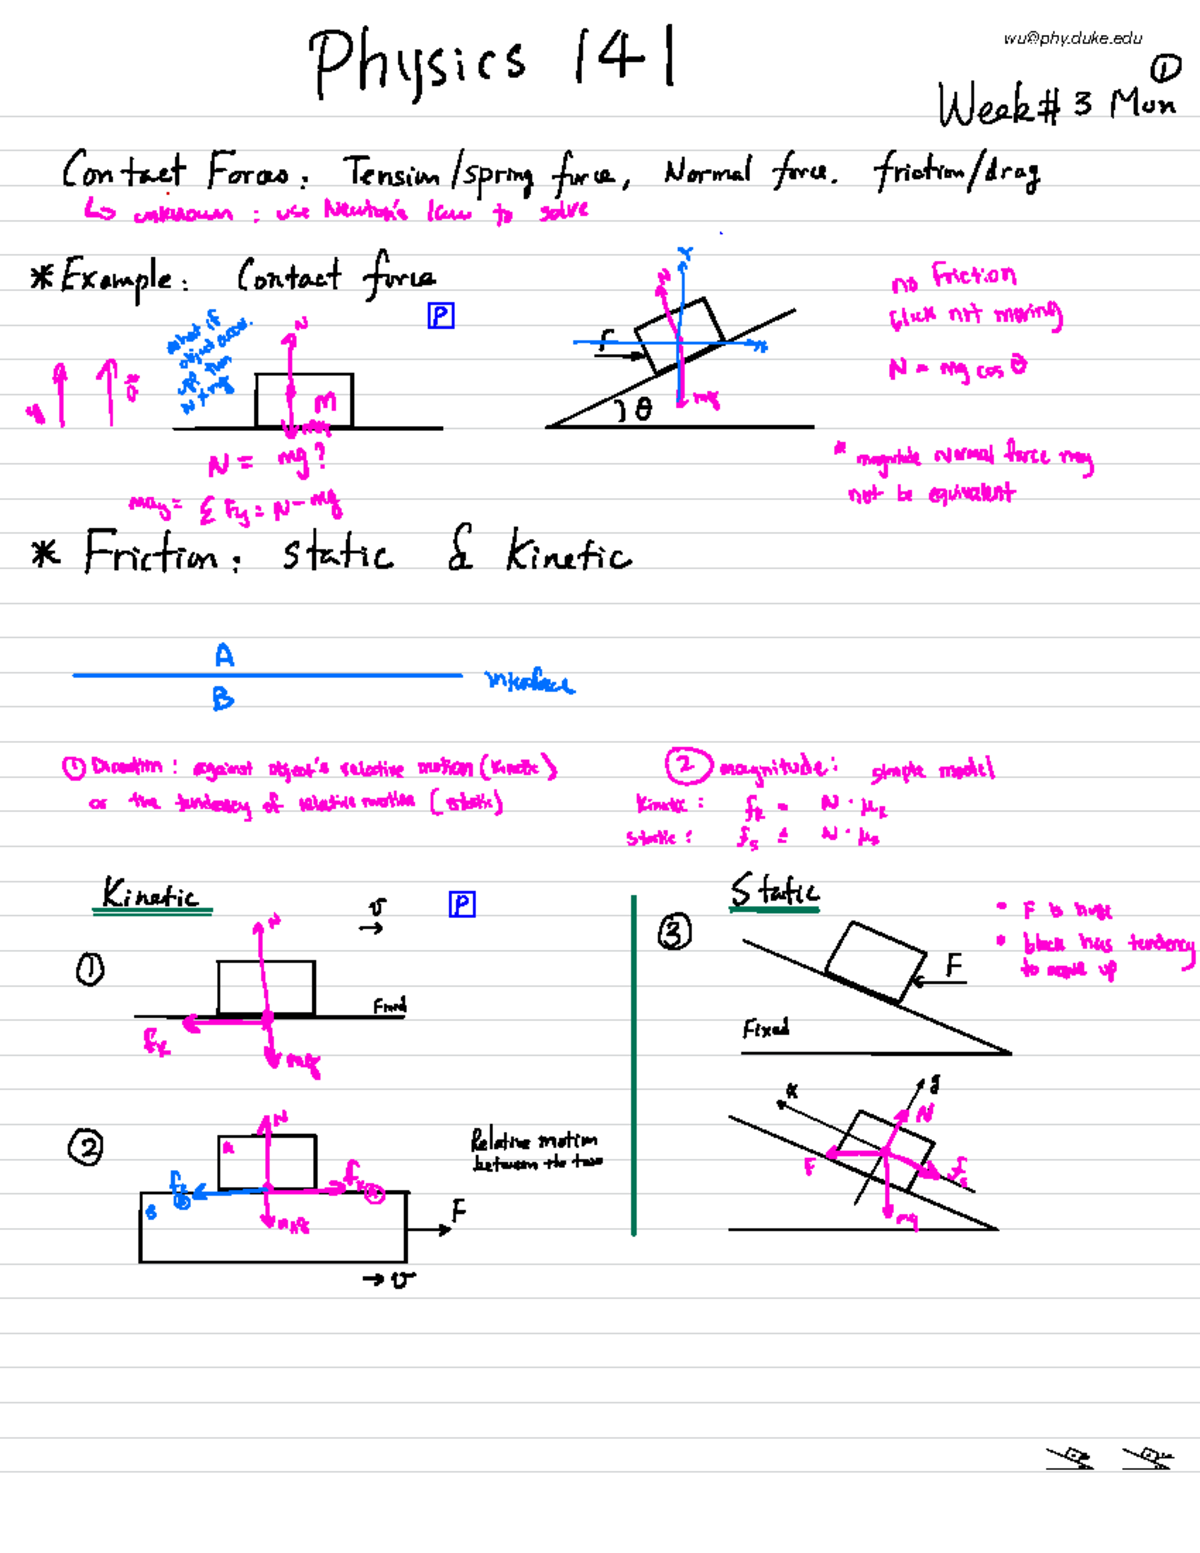 Physics 141
wu@phy.duke.edu
1
Week# 3 Mon
Contact Forces: Tension/spring force, Normal force. friction/drag
↳ unknown: use Newton's law to solve
* Example: Contact force
P
what if
N
M
mg
N = mg?
may = Σ Fy = N - mg
Y
N
F
x
mg
θ
no Friction
block not moving
N = mg cos θ
* magnitude normal force may
not be equivalent
* Friction: static & kinetic
A
B
interface
① Direction: against object's relative motion (kinetic)
or the tendency of relative motion (static)
② magnitude: simple model
kinetic: fk = N · μk
static: fs ≤ N · μs
Kinetic
P
v
①
N
Fixed
fk
mg
②
N
A
B
F
v
Relative motion
between the two
Static
③
• F is huge
• block has tendency
to move up
F
Fixed
x
y
N
F
fs
mg